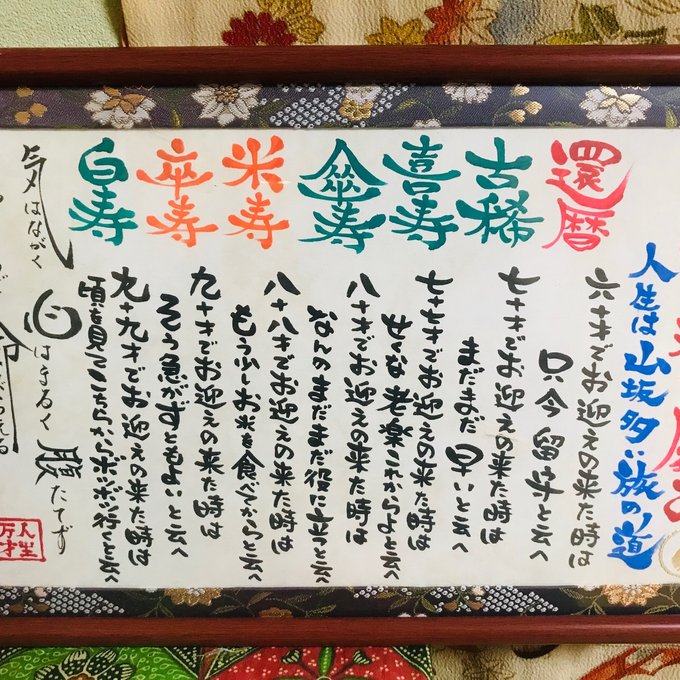 人生は山坂多い旅の道
還暦
六十才でお迎えの来た時は
只今留守と云へ
古稀
七十才でお迎えの来た時は
まだまだ早いと云へ
喜寿
七十七才でお迎えの来た時は
せくな老楽これからよと云へ
傘寿
八十才でお迎えの来た時は
なんのまだまだ役に立つと云へ
米寿
八十八才でお迎えの来た時は
もう少しお米を食べてからと云へ
卒寿
九十才でお迎えの来た時は
そう急がずともよいと云へ
白寿
九十九才でお迎えの来た時は
頃を見てこちらからボツボツ行くと云へ
気はながく
心はまるく
腹たてず
命
人生
万才